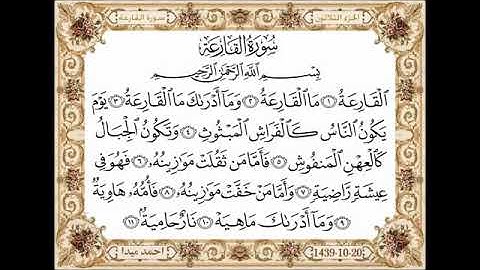 الجزء الثلاثون
سورة القارعة
سُورَةُ القَارِعَةِ
بِسْمِ اللَّهِ الرَّحْمَٰنِ الرَّحِيمِ
الْقَارِعَةُ ١ مَا الْقَارِعَةُ ٢ وَمَا أَدْرَىٰكَ مَا الْقَارِعَةُ ٣ يَوْمَ
يَكُونُ النَّاسُ كَالْفَرَاشِ الْمَبْثُوثِ ٤ وَتَكُونُ الْجِبَالُ
كَالْعِهْنِ الْمَنفُوشِ ٥ فَأَمَّا مَن ثَقُلَتْ مَوَٰزِينُهُ ٦ فَهُوَ فِي
عِيشَةٍ رَّاضِيَةٍ ٧ وَأَمَّا مَنْ خَفَّتْ مَوَٰزِينُهُ ٨ فَأُمُّهُ هَاوِيَةٌ
٩ وَمَا أَدْرَىٰكَ مَا هِيَهْ ١٠ نَارٌ حَامِيَةٌ ١١
احمد ميدا
1439-10-20